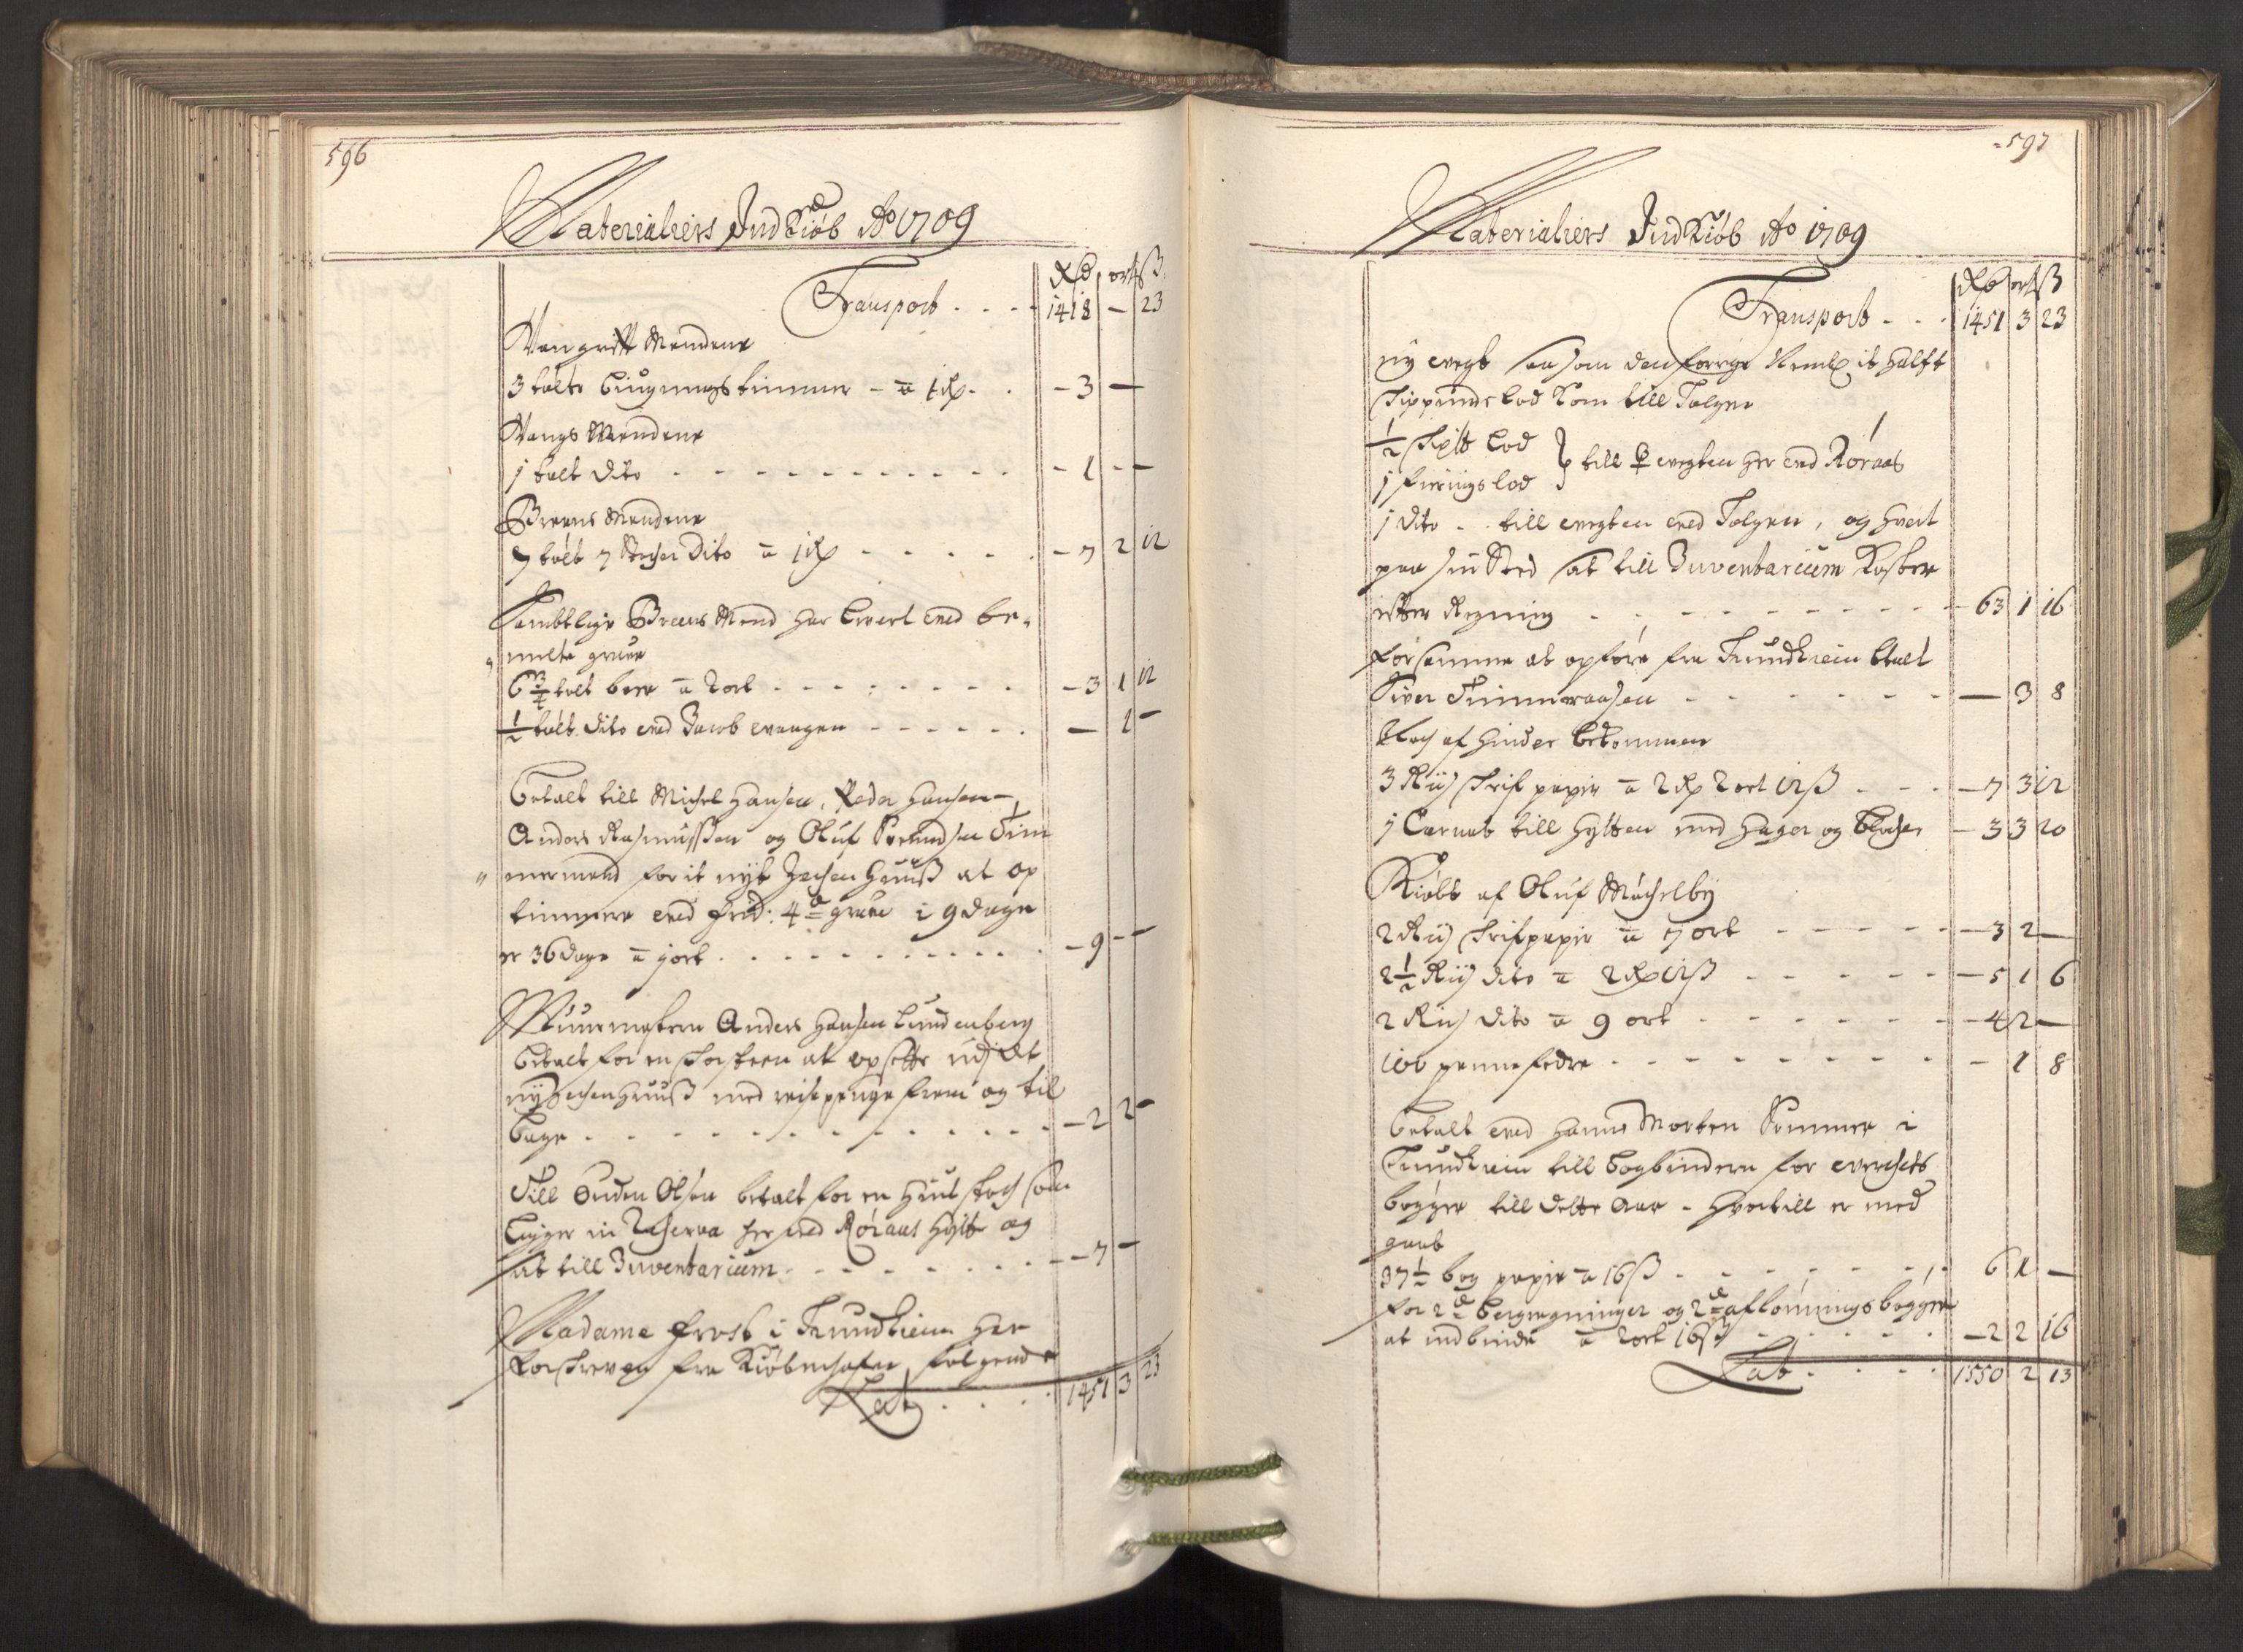 596
Materialiers Indkiøb Ao 1709
Rd ort ß
Transport 1418 - 23
Vangrøft Mendene
3 tolte bügnings timmer - a 1 Rd - 3 -
Vangs Mendene
1 tolt dito - 1 - -
Breens Mendene
7 tolt 7 stocher dito a 1 Rd - 7 2 12
Samtlige Breens Mend har levert ved be-
melte grube
6 3/4 tolt bere a 2 ort - 3 1 12
1/2 tolt dito ved Jacob Evangen - 1 -
betalt till Michel Hansen, Peder Hansen
Anders Rasmussøn og Oluf Svendsen Tim
mermend for it nyt Huuß at op
timmere ved frid: 4de grube i 9 dage
er 36 dage a 1 ort - 9 - -
Muurmesteren Anders Hansen Lundenberg
betalt for en skorsteen at opsette udj det
ny Huuß med reisepenge frem og til
bage - 2 2 -
Till Ouden Olsen betalt for en Hiul stoch som
ligger in Reserva her ved Røraas Hytte og
sat till Inventarium - 7 -
Madame Frost i Trundhiem har
forskreven fra Kiøbenhafn følgende
Lat 1451 3 23
597
Materialiers Indkiøb Ao 1709
Rd ort ß
Transport 1451 3 23
ny vegt saa som den forrige Neml it halft
skippunds lod som till Tolgen
1/2 Skp lod
1 fierings lod } till vegten her ved Røraas
1 dito - till vegten ved Tolgen, og hvert
paa sin sted sat till Inventarium koster
efter Regning - 63 1 16
for samme at opføre fra Trundhiem betalt
Siver - 3 8
Noch af hinder bekommen
3 Riis skrif papir a 2 Rd 2 ort 12 ß - 7 3 12
1 Carnat till hytten med hager og - 3 3 20
Kiøbt af Oluf Møchelby
2 Riis skrifpapir a 7 ort - 3 2 -
2 1/2 Riis dito a 2 Rd 12 ß - 5 1 6
2 Riis dito a 9 ort - 4 2 -
100 pennefedre - 1 8
betalt ved Hanns Morten Sommer i
Trundhiem till bogbinderen for verchets
bøgger till dette Aar - hvortill er med
gaaet
37 1/2 bog papir a 16 ß - 6 1 -
for 2de bergregninger og 2de afløningsbøgger
at indbinde a 2 ort 16 ß - 2 2 16
Lat 1550 2 13